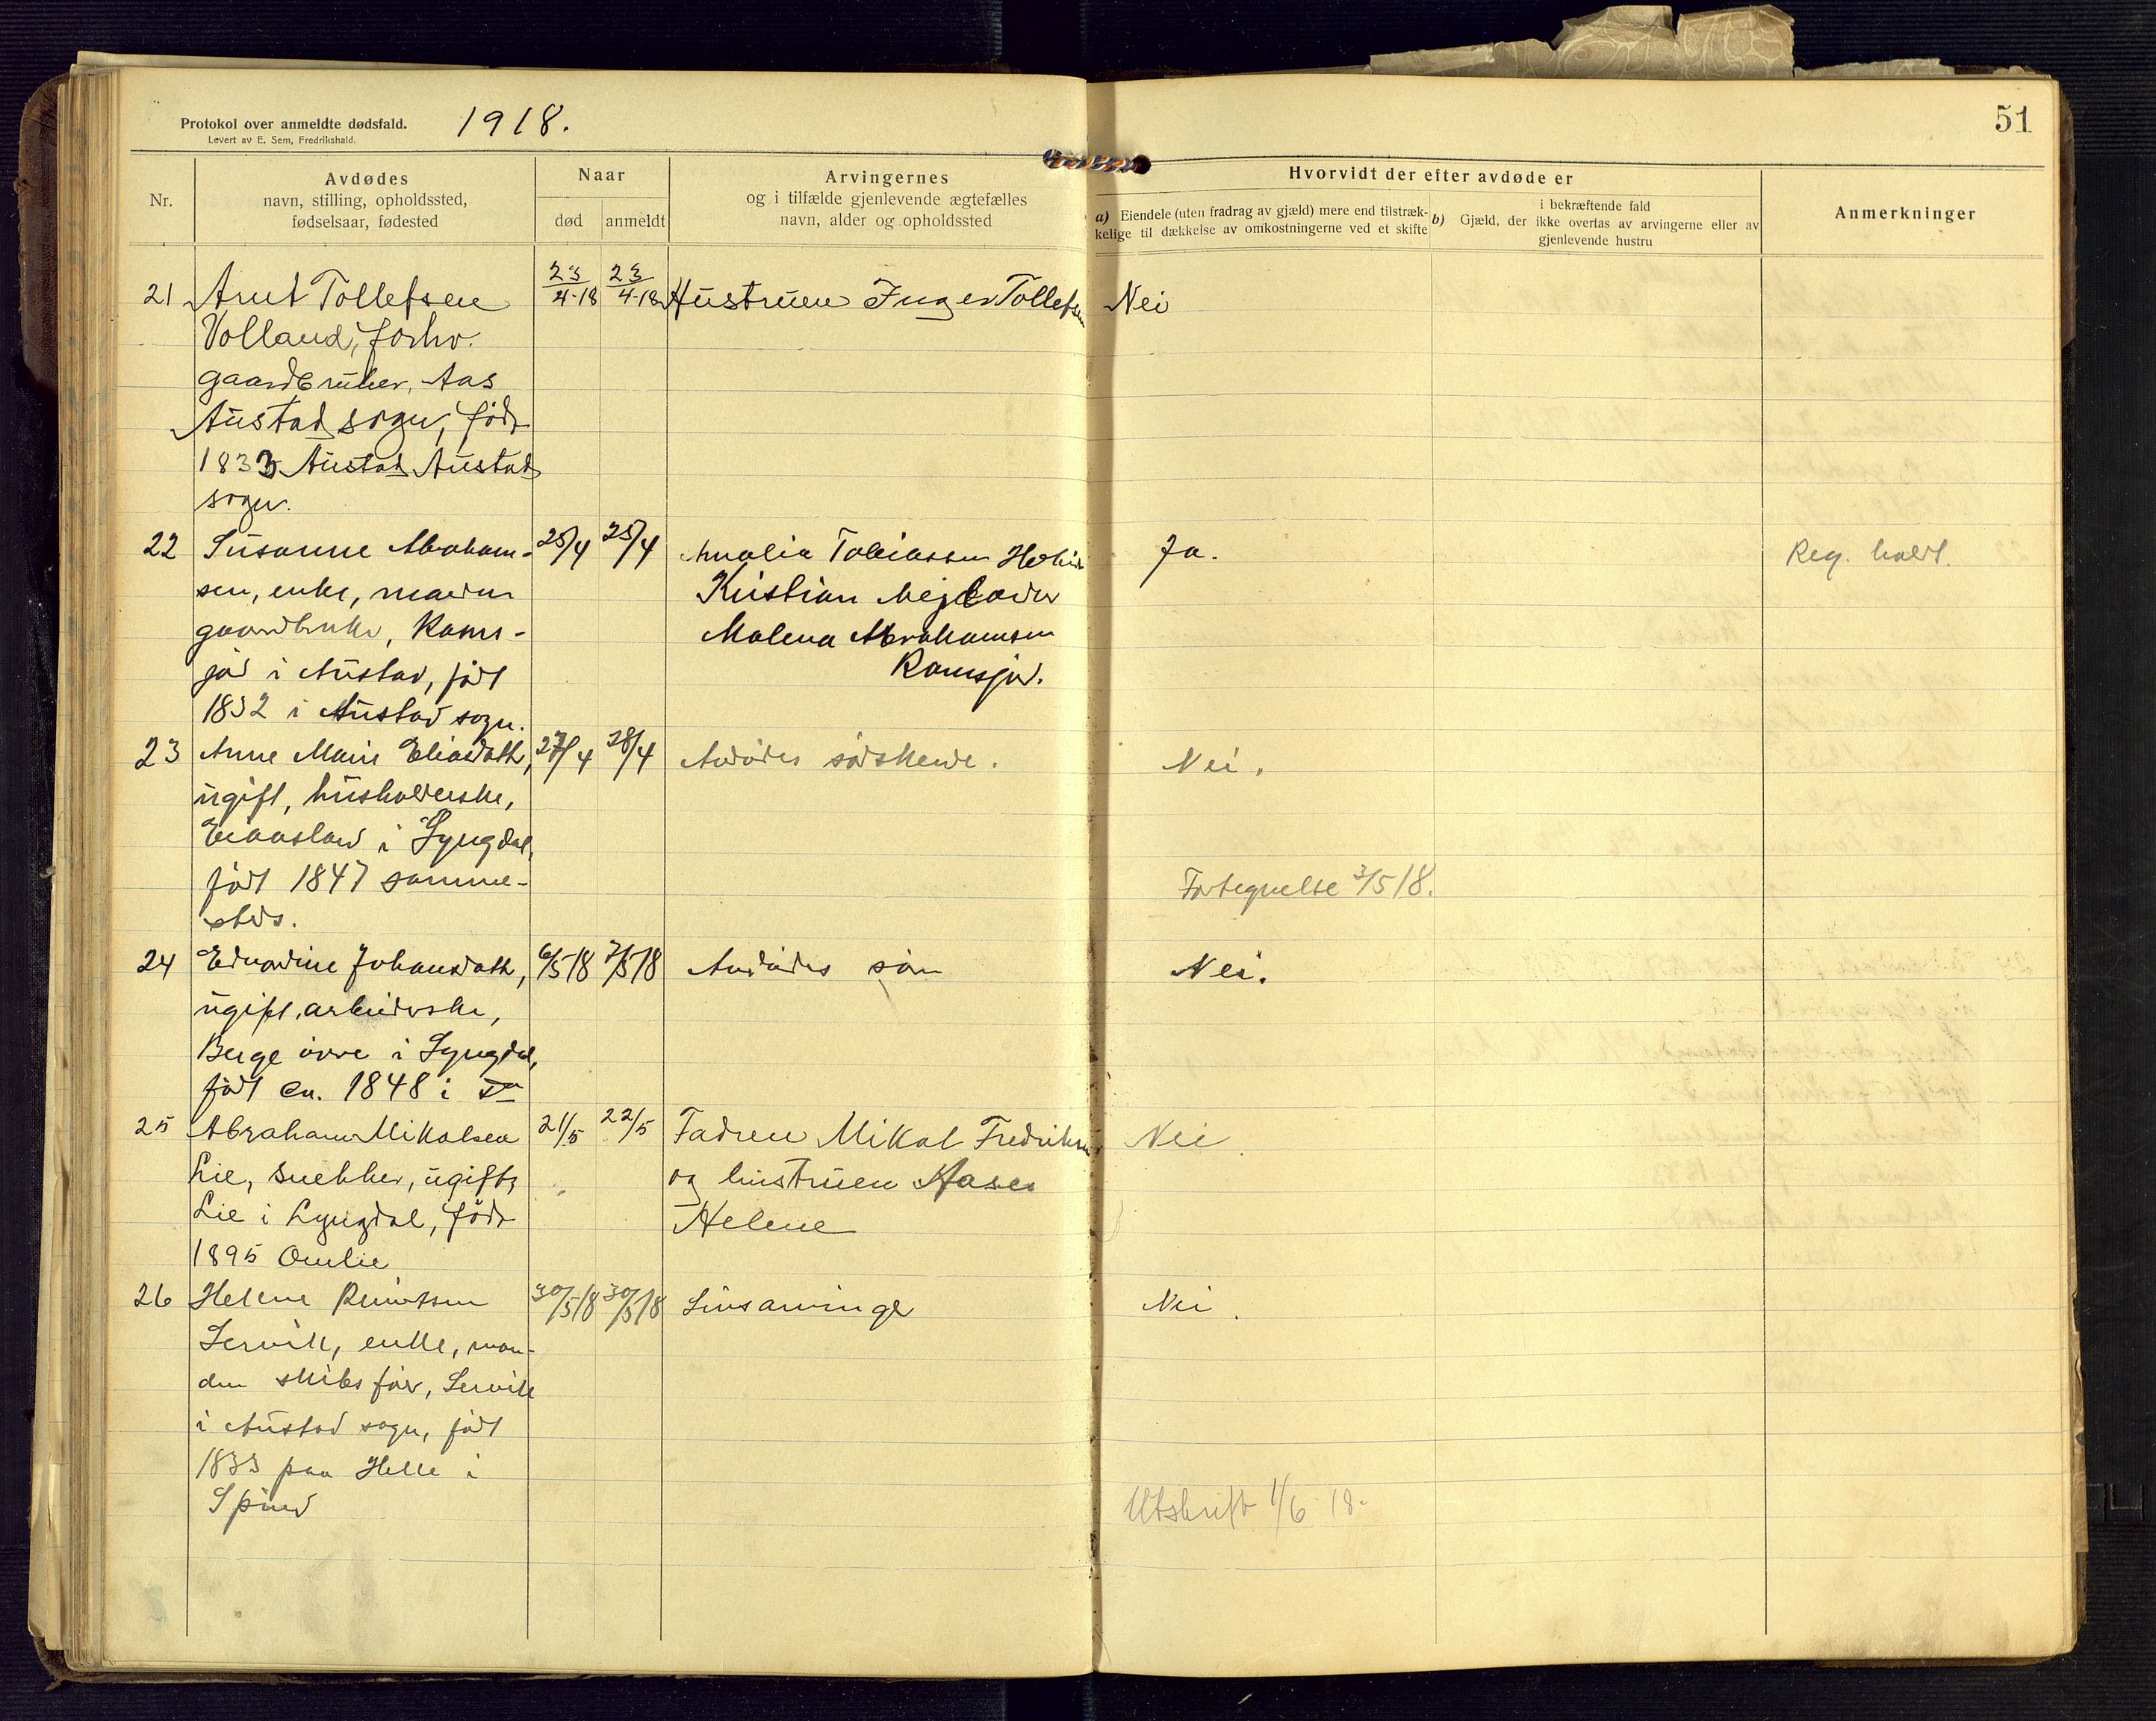 Protokol over anmeldte dødsfald.
Levert av E. Sem, Fredrikshald.
1918.
51
Nr.
Avdødes
navn, stilling, opholdssted,
fødselsaar, fødested
Naar
død
anmeldt
Arvingernes
og i tilfælde gjenlevende ægtefælles
navn, alder og opholdssted
Hvorvidt der efter avdøde er
a) Eiendele (uten fradrag av gjæld) mere end tilstræk-
kelige til dækkelse av omkostningerne ved et skifte
i bekræftende fald
b) Gjæld, der ikke overtas av arvingerne eller av
gjenlevende hustru
Anmerkninger
21 Arnt Tollefsen 23/4-18 23/4-18 Hustruen Inger Tollefsen Nei
Volland, forhv.
gaardbruker, Aas
Austad sogn, född
1833 Austad Austad
sogn.
22 Susanne Abraham- 25/4 25/4 Amalia Tobiassen Ja. Reg. holdt.
sen, enke, manden Kristian
gaardbruker, Rams- Malena Abrahamsen
jød i Austad, født Ramsjød.
1832 i Austad sogn.
23 Anne Marie Eliasdatt., 27/4 28/4 Avdødes sødskende. Nei.
ugift, husholderske,
i Lyngdal,
født 1847 samme-
steds.
Fortegnelse 3/5 18.
24 Edvardine Johansdatt., 6/5 18 7/5 18 Avdødes søn Nei.
ugift, arbeiderske,
Berge övre i Lyngdal,
født ca. 1848 i do
25 Abraham Mikalsen 21/5 22/5 Fadren Mikal Fredriksen Nei
Lie, snekker, ugift, og hustruen Aase
Lie i Lyngdal, född Helene
1895 Omlie
26 Helene Reinertsen 30/5 18 30/5 18 Livsarvinger Nei.
Lervik, enke, man-
den skibsfører, Lervik
i Austad sogn, født
1833 paa Helle i
Spind
Utskrift 1/6 18.